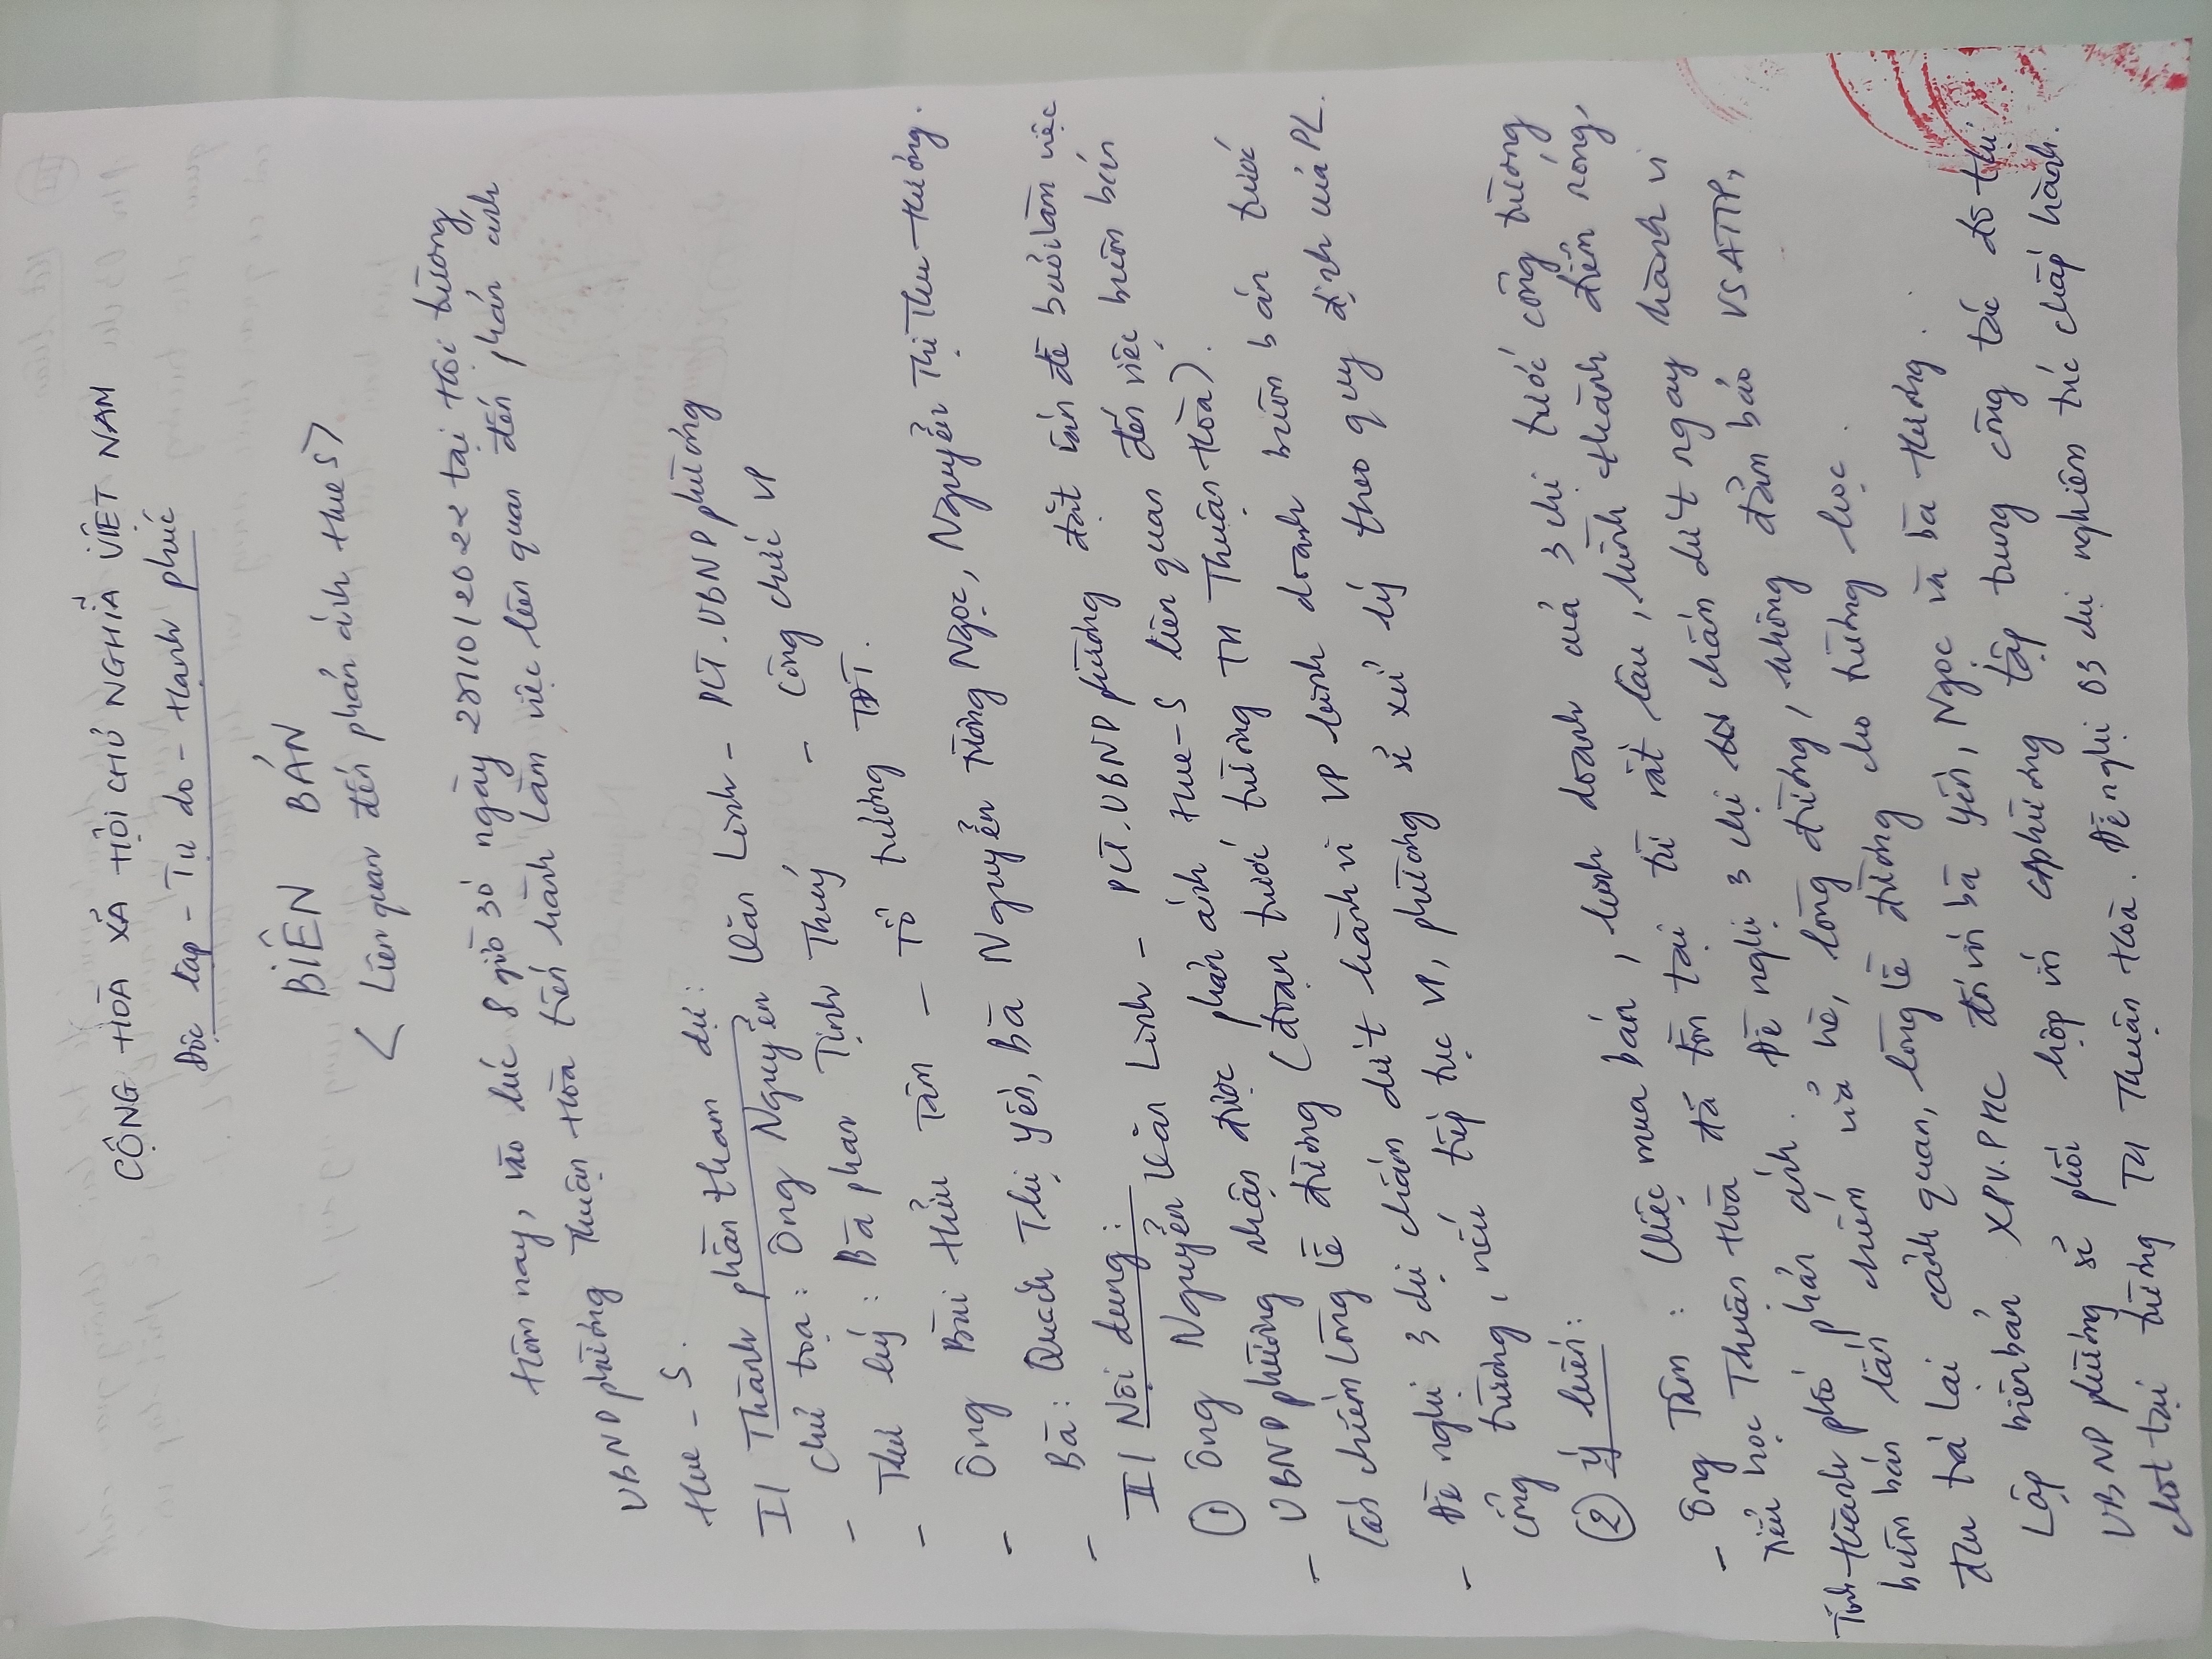 CỘNG HÒA XÃ HỘI CHỦ NGHĨA VIỆT NAM
Độc lập - Tự do - Hạnh phúc
BIÊN BẢN
< Liên quan đến phản ánh Hue S >
Hôm nay, vào lúc 8 giờ 30 ngày 20/10/2022 tại Hội trường
UBND phường Thuận Hòa tiến hành làm việc liên quan đến phản ánh
Hue - S.
I/ Thành phần tham dự:
- Chủ tọa: Ông Nguyễn Văn Linh - PCT. UBND phường
- Thư ký: Bà Phan Tịnh Thuý - Công chức VP
- Ông Bùi Hữu Tân - Tổ trưởng TĐT.
- Bà: Quách Thị Yến, Bà Nguyễn Trương Ngọc, Nguyễn Thị Thu Hương.
II/ Nội dung:
① Ông Nguyễn Văn Linh - PCT. UBND phường đặt vấn đề buổi làm việc
- UBND phường nhận được phản ánh Hue-S liên quan đến việc buôn bán
lấn chiếm lòng lề đường (đoạn trước trường TH Thuận Hòa).
- Đề nghị 3 chị chấm dứt hành vi VP kinh doanh buôn bán trước
cổng trường, nếu tiếp tục VP, phường sẽ xử lý theo quy định của PL.
② Ý kiến:
- Ông Tân: Việc mua bán, kinh doanh của 3 chị trước cổng trường
Tiểu học Thuận Hòa đã tồn tại từ rất lâu, hình thành điểm nóng,
Tỉnh-thành phố phản ánh. Đề nghị 3 chị chấm dứt ngay hành vi
buôn bán lấn chiếm vỉa hè, lòng đường, không đảm bảo VSATTP,
trả lại cảnh quan, lòng lề đường cho trường học.
Lập biên bản XPV.PHC đối với bà Yến, Ngọc và bà Hương.
UBND phường sẽ phối hợp với CA phường tập trung công tác đô thị
chốt tại trường TH Thuận Hòa. Đề nghị 03 chị nghiêm túc chấp hành.